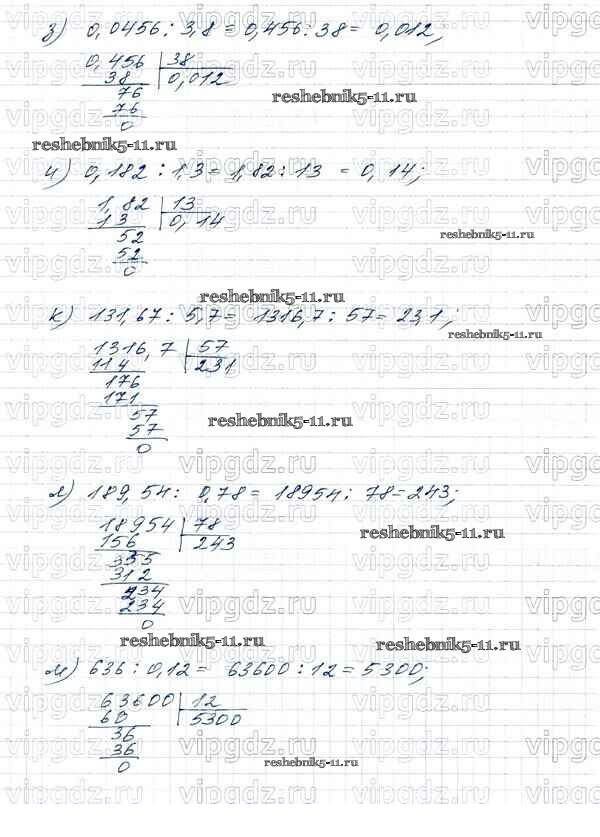 з) 0,0456 : 3,8 = 0,456 : 38 = 0,012;
0,456 | 38
38 | 0,012
76
76
0
reshebnik5-11.ru
reshebnik5-11.ru
и) 0,182 : 1,3 = 1,82 : 13 = 0,14;
1,82 | 13
13 | 0,14
52
52
0
reshebnik5-11.ru
reshebnik5-11.ru
к) 131,67 : 5,7 = 1316,7 : 57 = 23,1;
1316,7 | 57
114 | 231
176
171
57
57
0
reshebnik5-11.ru
reshebnik5-11.ru
л) 189,54 : 0,78 = 18954 : 78 = 243;
18954 | 78
156 | 243
335
312
234
234
0
reshebnik5-11.ru
reshebnik5-11.ru
reshebnik5-11.ru
м) 636 : 0,12 = 63600 : 12 = 5300;
63600 | 12
60 | 5300
36
36
0
reshebnik5-11.ru
vipgdz.ru